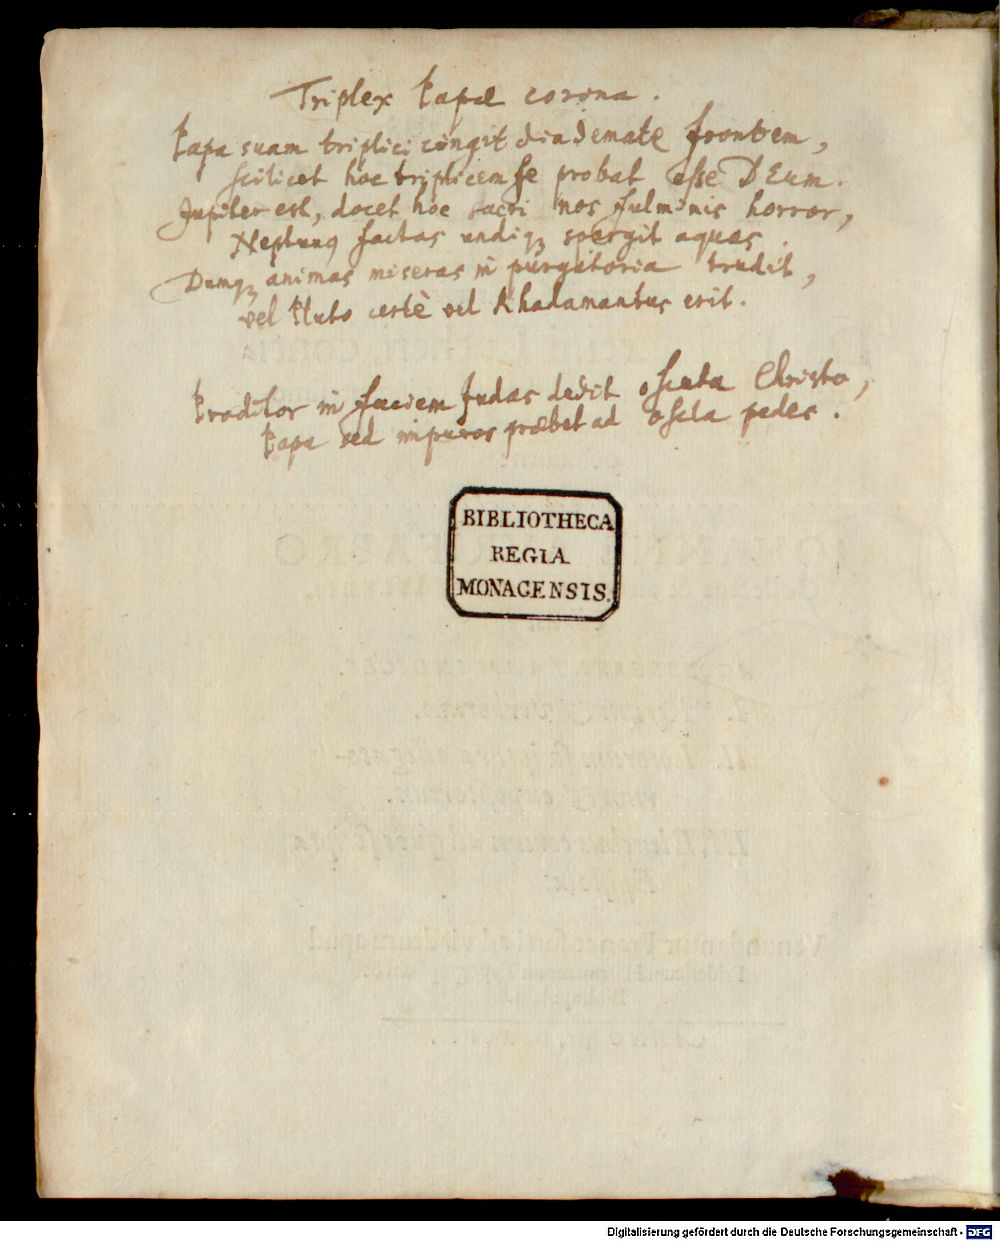 Triplex Papæ corona.
Papa suam triplici cingit diademate frontem,
scilicet hoc triplicem se probat esse DEum.
Jupiter est, docet hoc sacri nos fulminis horror,
Neptunꝰ factas undiqꝫ spergit aquas.
Dumqꝫ animas miseras in purgatoria trudit,
vel Pluto certè vel Rhadamantus erit.
Proditor in faciem Judas dedit oscula Christo,
Papa sed impuros præbet ad oscla pedes.
BIBLIOTHECA
REGIA
MONACENSIS.
Digitalisierung gefördert durch die Deutsche Forschungsgemeinschaft - DFG